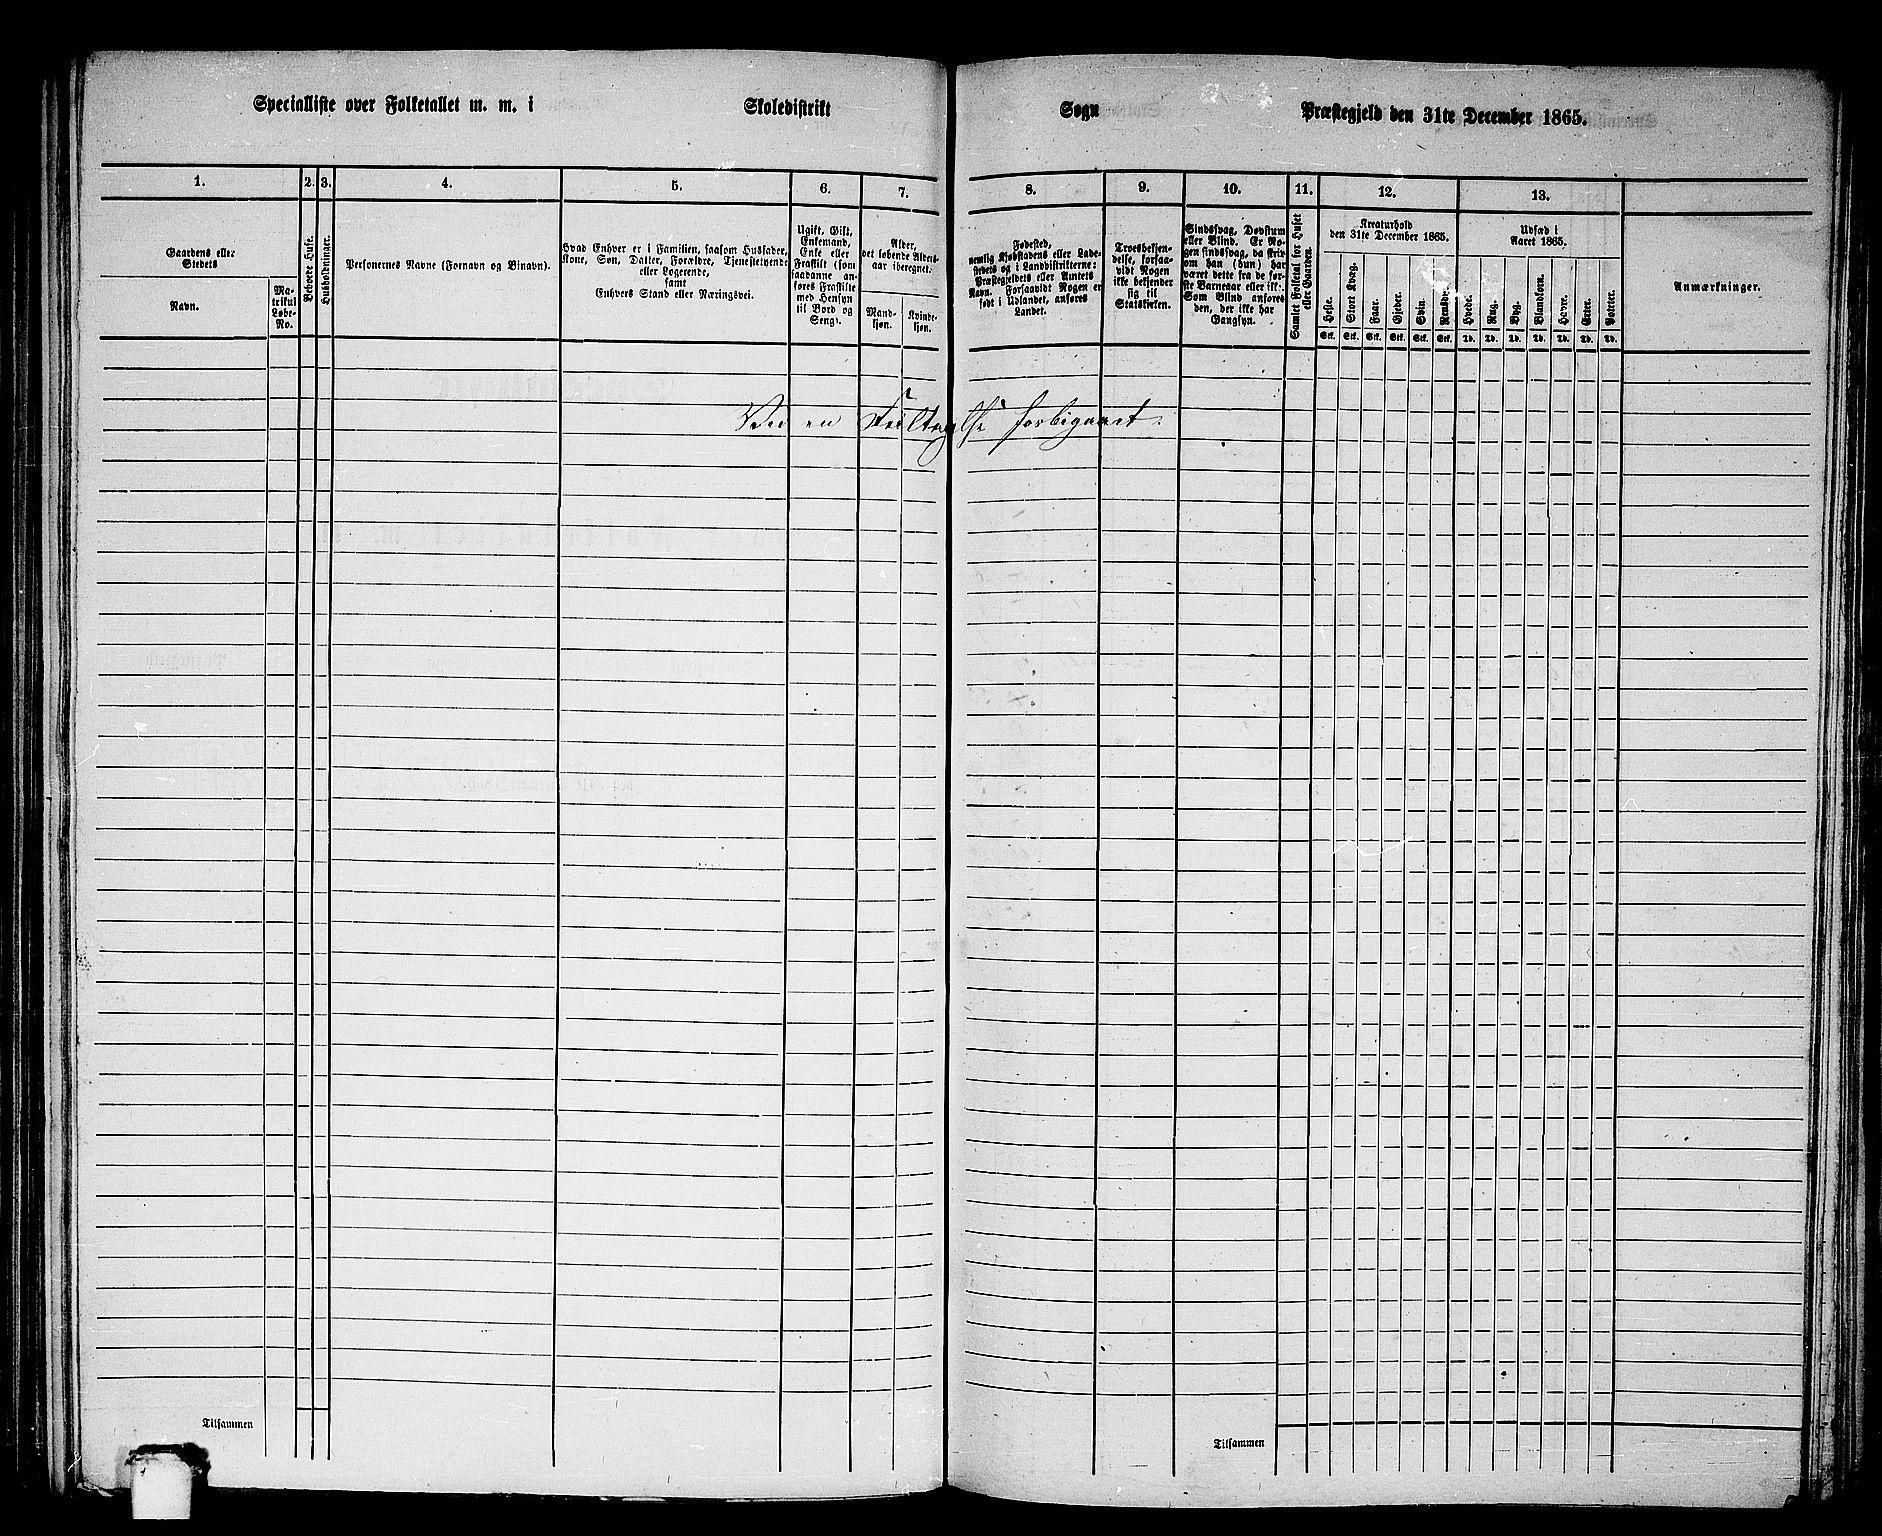 Specialliste over Folketallet m. m. i Skoledistrikt Sogn Præstegjeld den 31te December 1865.
1. 2. 3. 4. 5. 6. 7. 8. 9. 10. 11. 12. 13.
Gaardens eller
Stedets
Navn.
Ma-
trikul
Løbe-
No.
Beboede Huse.
Husholdninger.
Personernes Navne (Fornavn og Binavn).
Hvad Enhver er i Familien, saasom Husfader,
Kone, Søn, Datter, Forældre, Tjenestetyende
eller Logerende,
samt
Enhvers Stand eller Næringsvei.
Ugift, Gift,
Enkemand,
Enke eller
Fraskilt (som
saadanne an-
føres Fraskilte
med Hensyn
til Bord og
Seng).
Alder,
det løbende Alders-
aar iberegnet.
Mand-
kjøn.
Kvinde-
kjøn.
Fødested,
nemlig Kjøbstadens eller Lade-
stedets og i Landdistrikterne:
Præstegjeldets eller Amtets
Navn. Forsaavidt Nogen er
født i Udlandet, anføres
Landet.
Troesbekjen-
delse, forsaa-
vidt Nogen
ikke bekjender
sig til
Statskirken.
Sindssvag, Døvstum
eller Blind. Er No-
gen sindssvag, da skriv
om han (hun) har
været dette fra de før-
ste Barneaar eller ikke.
Som Blind anføres
den, der ikke har
Gangsyn.
Samlet Folketal for Huset
eller Gaarden.
Kreaturhold
den 31te December 1865.
Heste. Stort Kvæg. Faar. Gjeder. Svin. Rensdyr.
Stk. Stk. Stk. Stk. Stk. Stk.
Udsæd i
Aaret 1865.
Hvede. Rug. Byg. Blandkorn. Havre. Erter. Poteter.
Td. Td. Td. Td. Td. Td. Td.
Anmærkninger.
Ved en Feiltagelse forbigaaet.
Tilsammen
Tilsammen